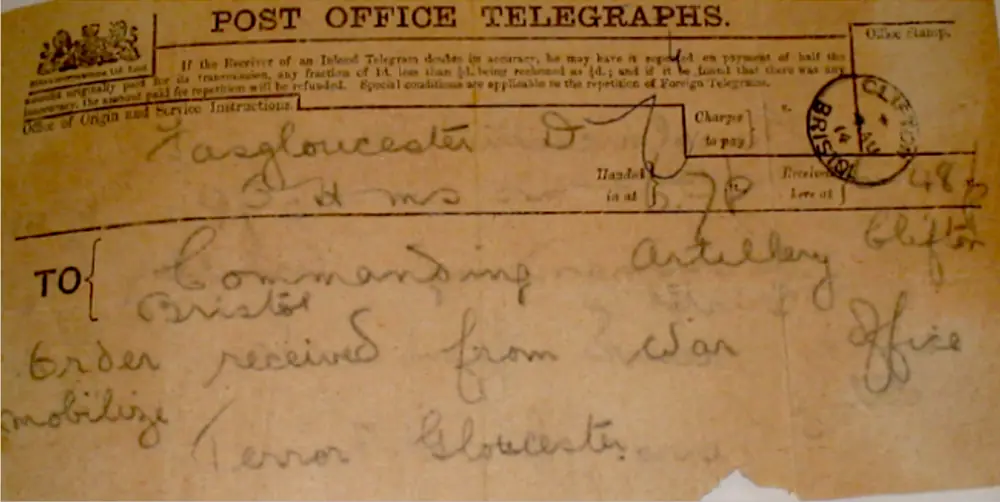 POST OFFICE TELEGRAPHS.
If the Receiver of an Inland Telegram doubts its accuracy, he may have it repeated on payment of half the
amount originally paid for its transmission, any fraction of 1d. less than ½d. being reckoned as ½d.; and if it be found that there was any
inaccuracy, the amount paid for repetition will be refunded. Special conditions are applicable to the repetition of Foreign Telegrams.
Office Stamp.
Office of Origin and Service Instructions.
Gloucester D
O H M S
Charges
to pay
Handed
in at
Received
here at
CLIFTON
BRISTOL
AU
14
TO
Commanding Artillery Clifton
Bristol
Order received from War Office
mobilize
Terror Gloucester